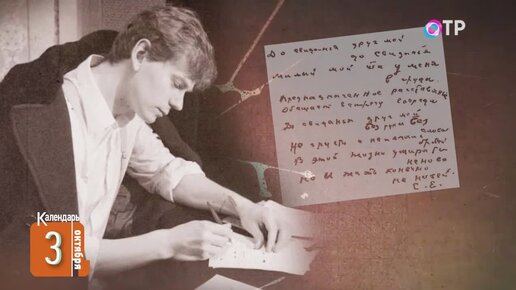 ОТР
До свиданья друг мой
до свиданья
Милый мой ты у меня
в груди.
Предназначенное расставанье
Обещает встречу впереди
До свиданья друг мой
без руки без слова
Не грусти и не печаль бровей
В этой жизни умирать
не ново
но и жить конечно
не новей.
С. Е.
Календарь
3
октября